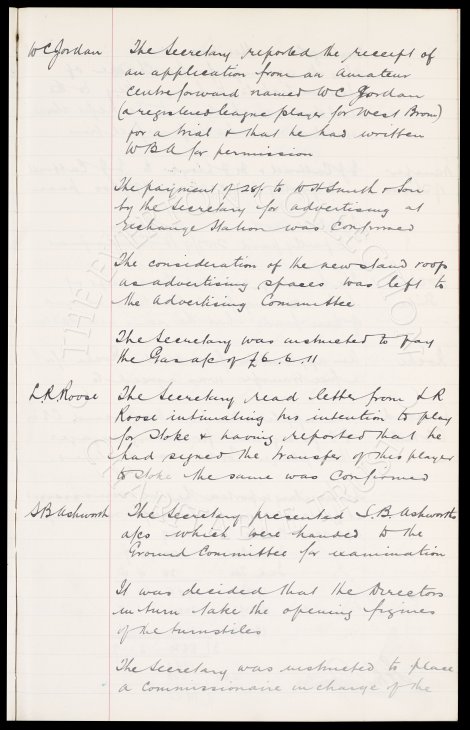 WC Jordan
The Secretary reported the receipt of
an application from an amateur
centre forward named WC Jordan
(a registered league player for West Brom)
for a trial & that he had written
WBA for permission
The payment of 28/ to WH Smith & Son
by the Secretary for advertising at
Exchange Station was confirmed
The consideration of the new stand roofs
as advertising spaces was left to
the Advertising Committee
The Secretary was instructed to pay
the Gas a/c of £6.6.11
LR Roose
The Secretary read letter from LR
Roose intimating his intention to play
for Stoke & having reported that he
had signed the transfer of this player
to Stoke the same was confirmed
SB Ashworth
The Secretary presented S.B. Ashworth's
a/cs which were handed to the
Ground Committee for examination
It was decided that the Directors
in turn take the opening figures
of the turnstiles
The Secretary was instructed to place
a commissionaire in charge of the